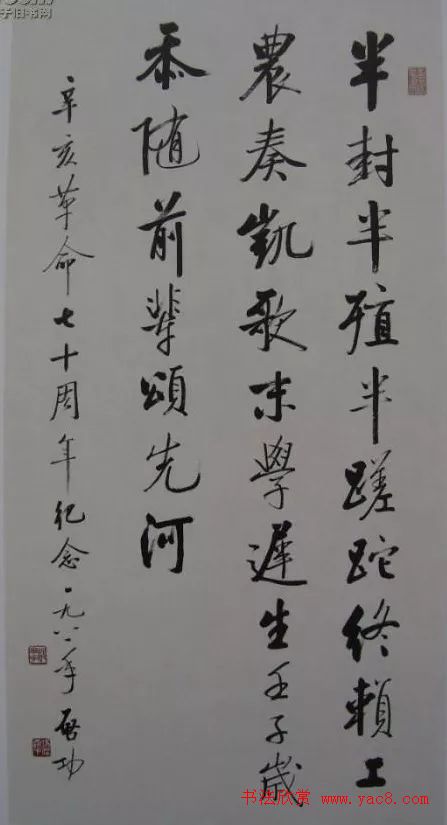 半封半殖半蹉跎终赖工
農奏凱歌末學遲生壬子歲
忝随前輩頌先河
辛亥革命七十周年纪念一九八一年 啓功
书法欣赏:www.yac8.com